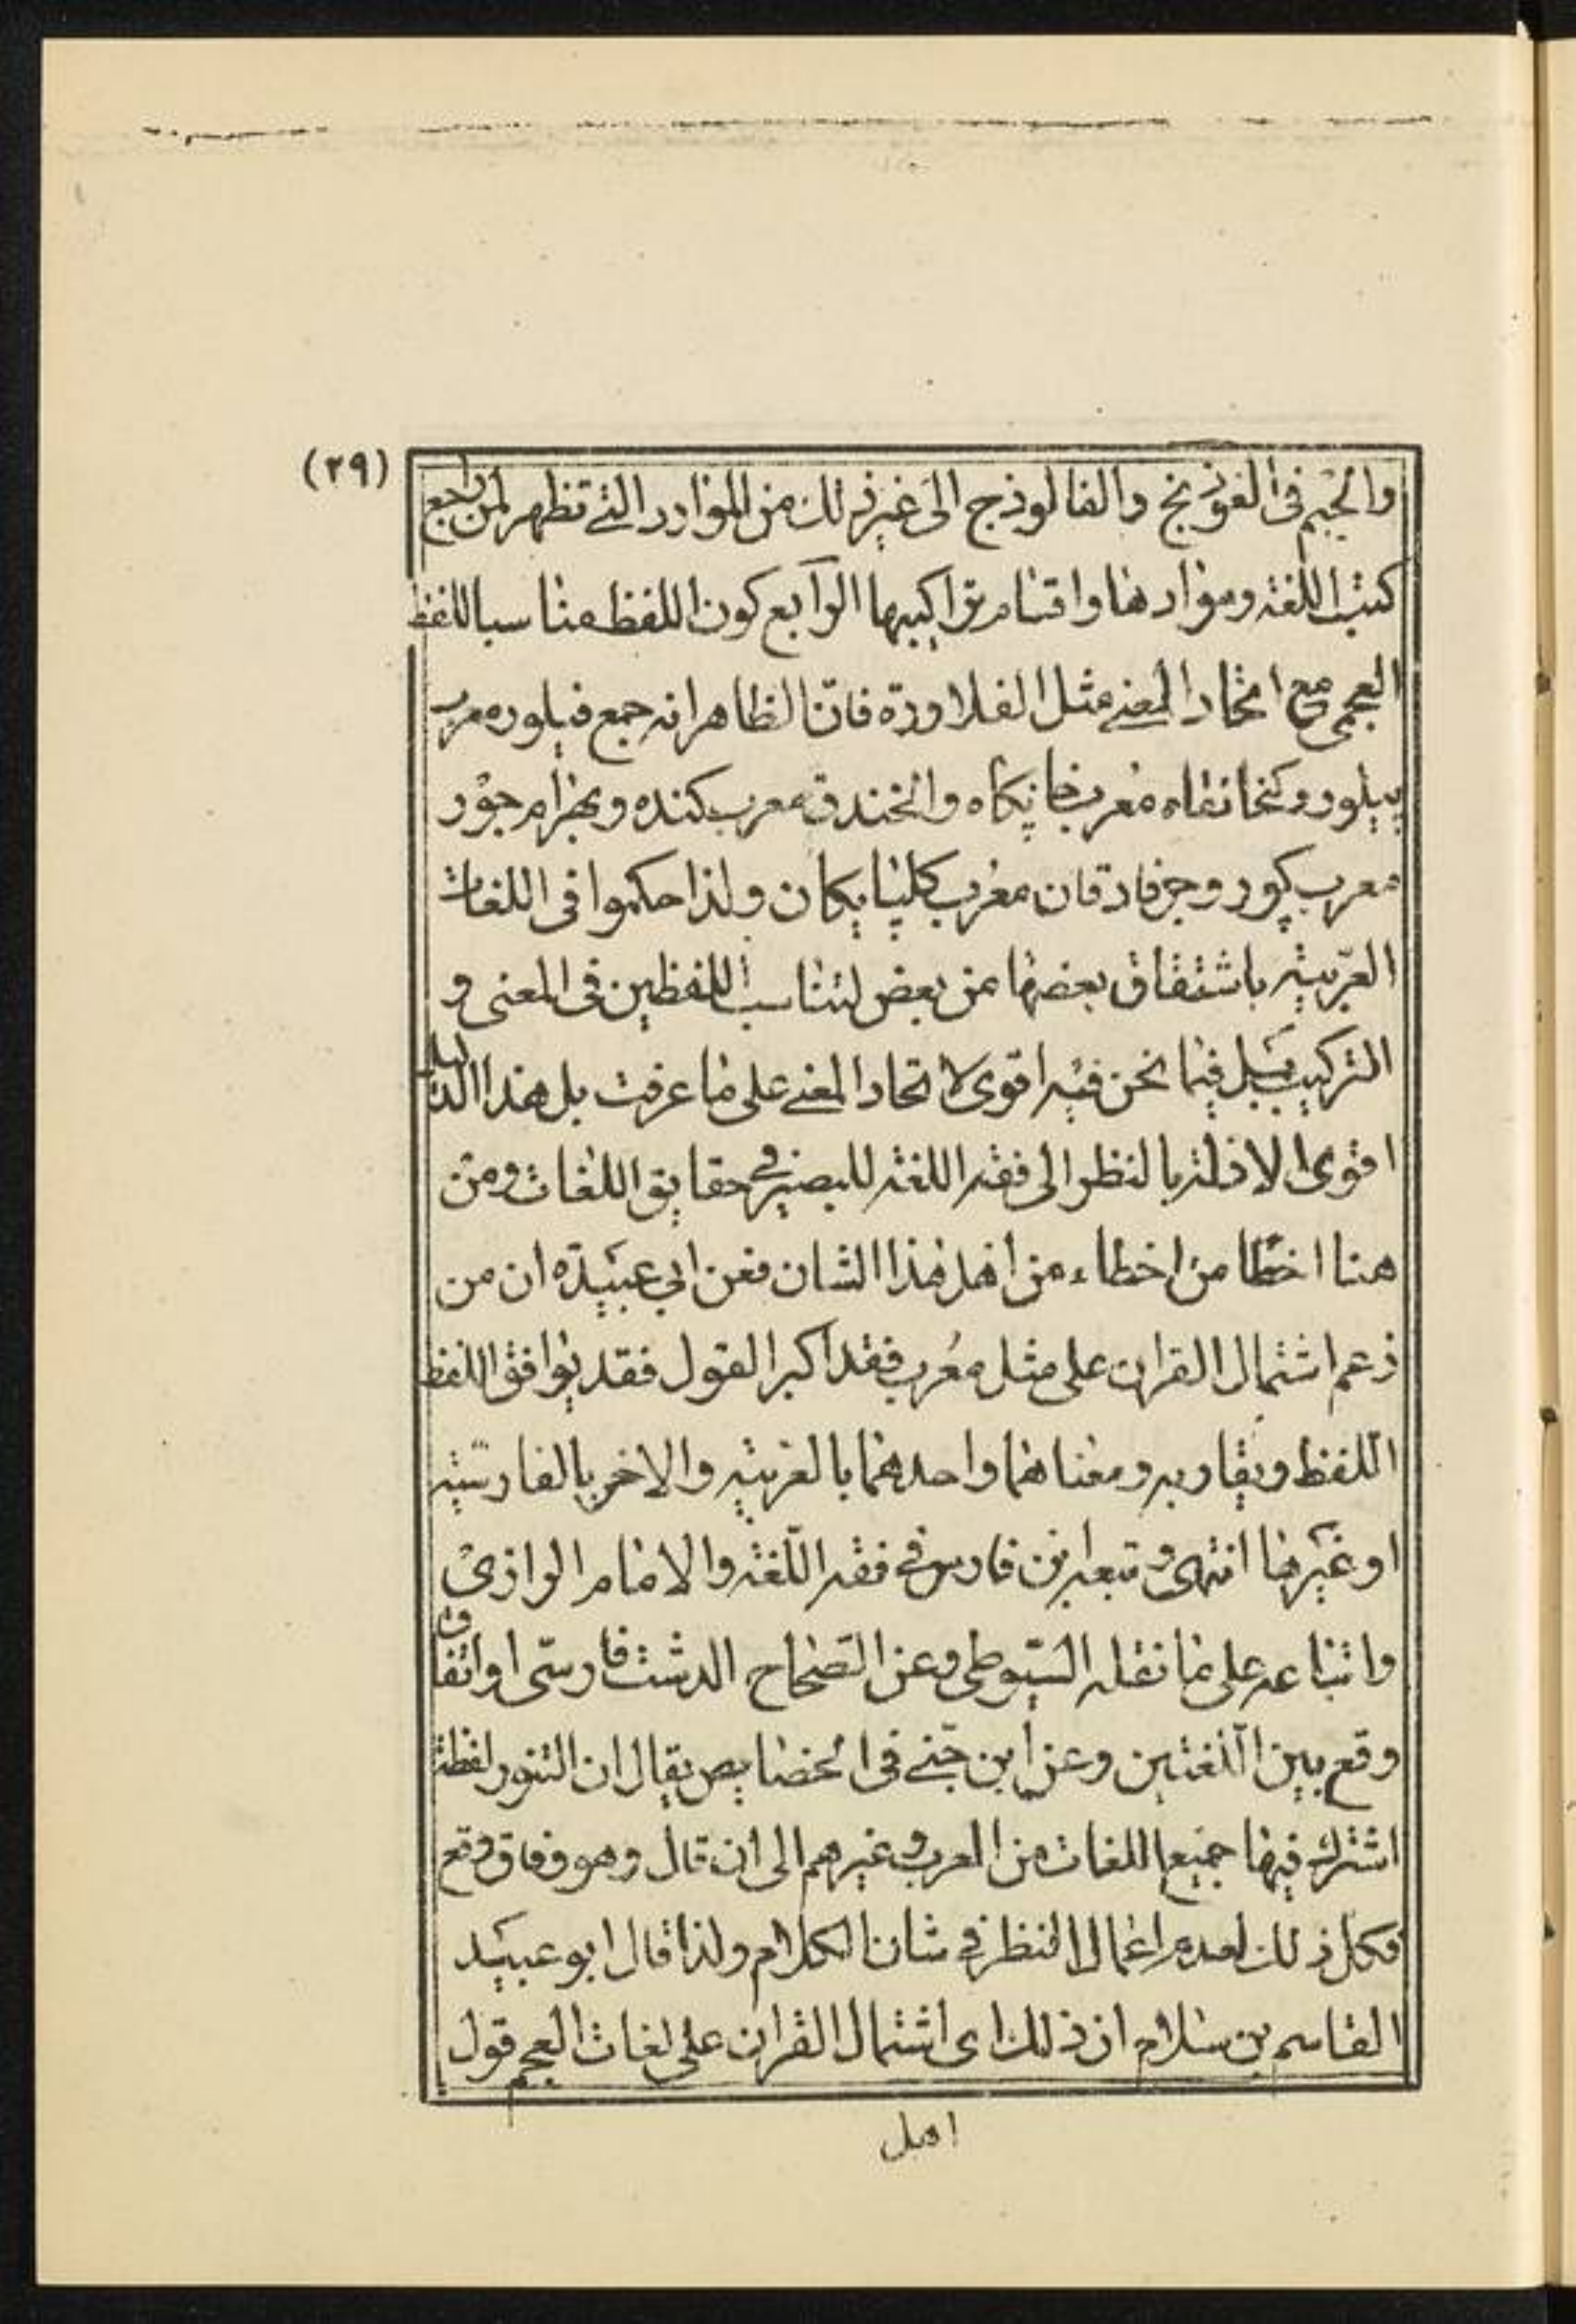 (٢٩)
والجيم فى الفوذنج والفالوذج الى غير ذلك من الموادد التى تظهر لمن راجع
كتب اللغة ومواردها واقسام تراكيبها الرابع كون اللفظ مناسبا للفظ
العجمى مع اتحاد المعنى مثل الفلاورة فان الظاهر انه جمع فيلوره معرب
پيلور وكخانقاه معرب خانگاه والخندق معرب كنده وبهرام جور
معرب گور وجرفادقان معرب گلپايگان ولذا حكموا فى اللغات
العربية باشتقاق بعضها من بعض لتناسب اللفظين فى المعنى و
التركيب بل فيما نحن فيه اقوى لاتحاد المعنى على ما عرفت بل هذا الدليل
اقوى الادلة بالنظر الى فقه اللغة للبصير فى حقايق اللغات ومن
هنا اخطا من اخطاء من اهل هذا الشان فعن ابى عبيدة ان من
زعم اشتمال القران على مثل معرب فقد اكبر القول فقد يوافق اللفظ
اللفظ ويقاربه ومعناهما واحدهما بالعربية والاخر بالفارسية
او غيرها انتهى وتبعه ابن فارس فى فقه اللغة والامام الرازى
واتباعه على ما نقله السيوطى وعن الصحاح الدشت فارسى او اتفاق
وقع بين اللغتين وعن ابن جنى فى الخصايص يقال ان التنور لفظة
اشترك فيها جميع اللغات من العرب وغيرهم الى ان قال وهو وفاق وقع
فكل ذلك لعدم اعمال النظر فى شان الكلام ولذا قال ابو عبيد
القاسم بن سلام ان ذلك اى اشتمال القران على لغات العجم قول
اهل